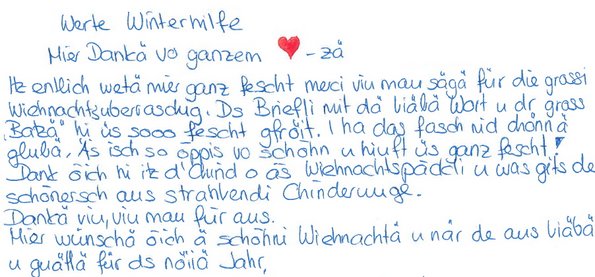 Werte Winterhilfe
Mier Dankä vo ganzem ❤ -zä
Itz entlich wetä mier ganz fescht merci viu mau sägä für die grossi
Wiehnachtsüberraschig. Ds Briefli mit dä liäbä Wort u dr gross
"Batzä" hi üs sooo fescht gfröit. I ha das fasch nid chönnä
gloubä. Äs isch so öppis vo schöhn u hiuft üs ganz fescht!
Dank öich hi itz d'Chind o äs Wiehnachtspäckli u was gits de
schönersch aus strahlendi Chinderouge.
Dankä viu, viu mau für aus.
Mier wünschä öich ä schöhni Wiehnachtä u när de aus liäbä
u guätä für ds nöiiä Jahr,